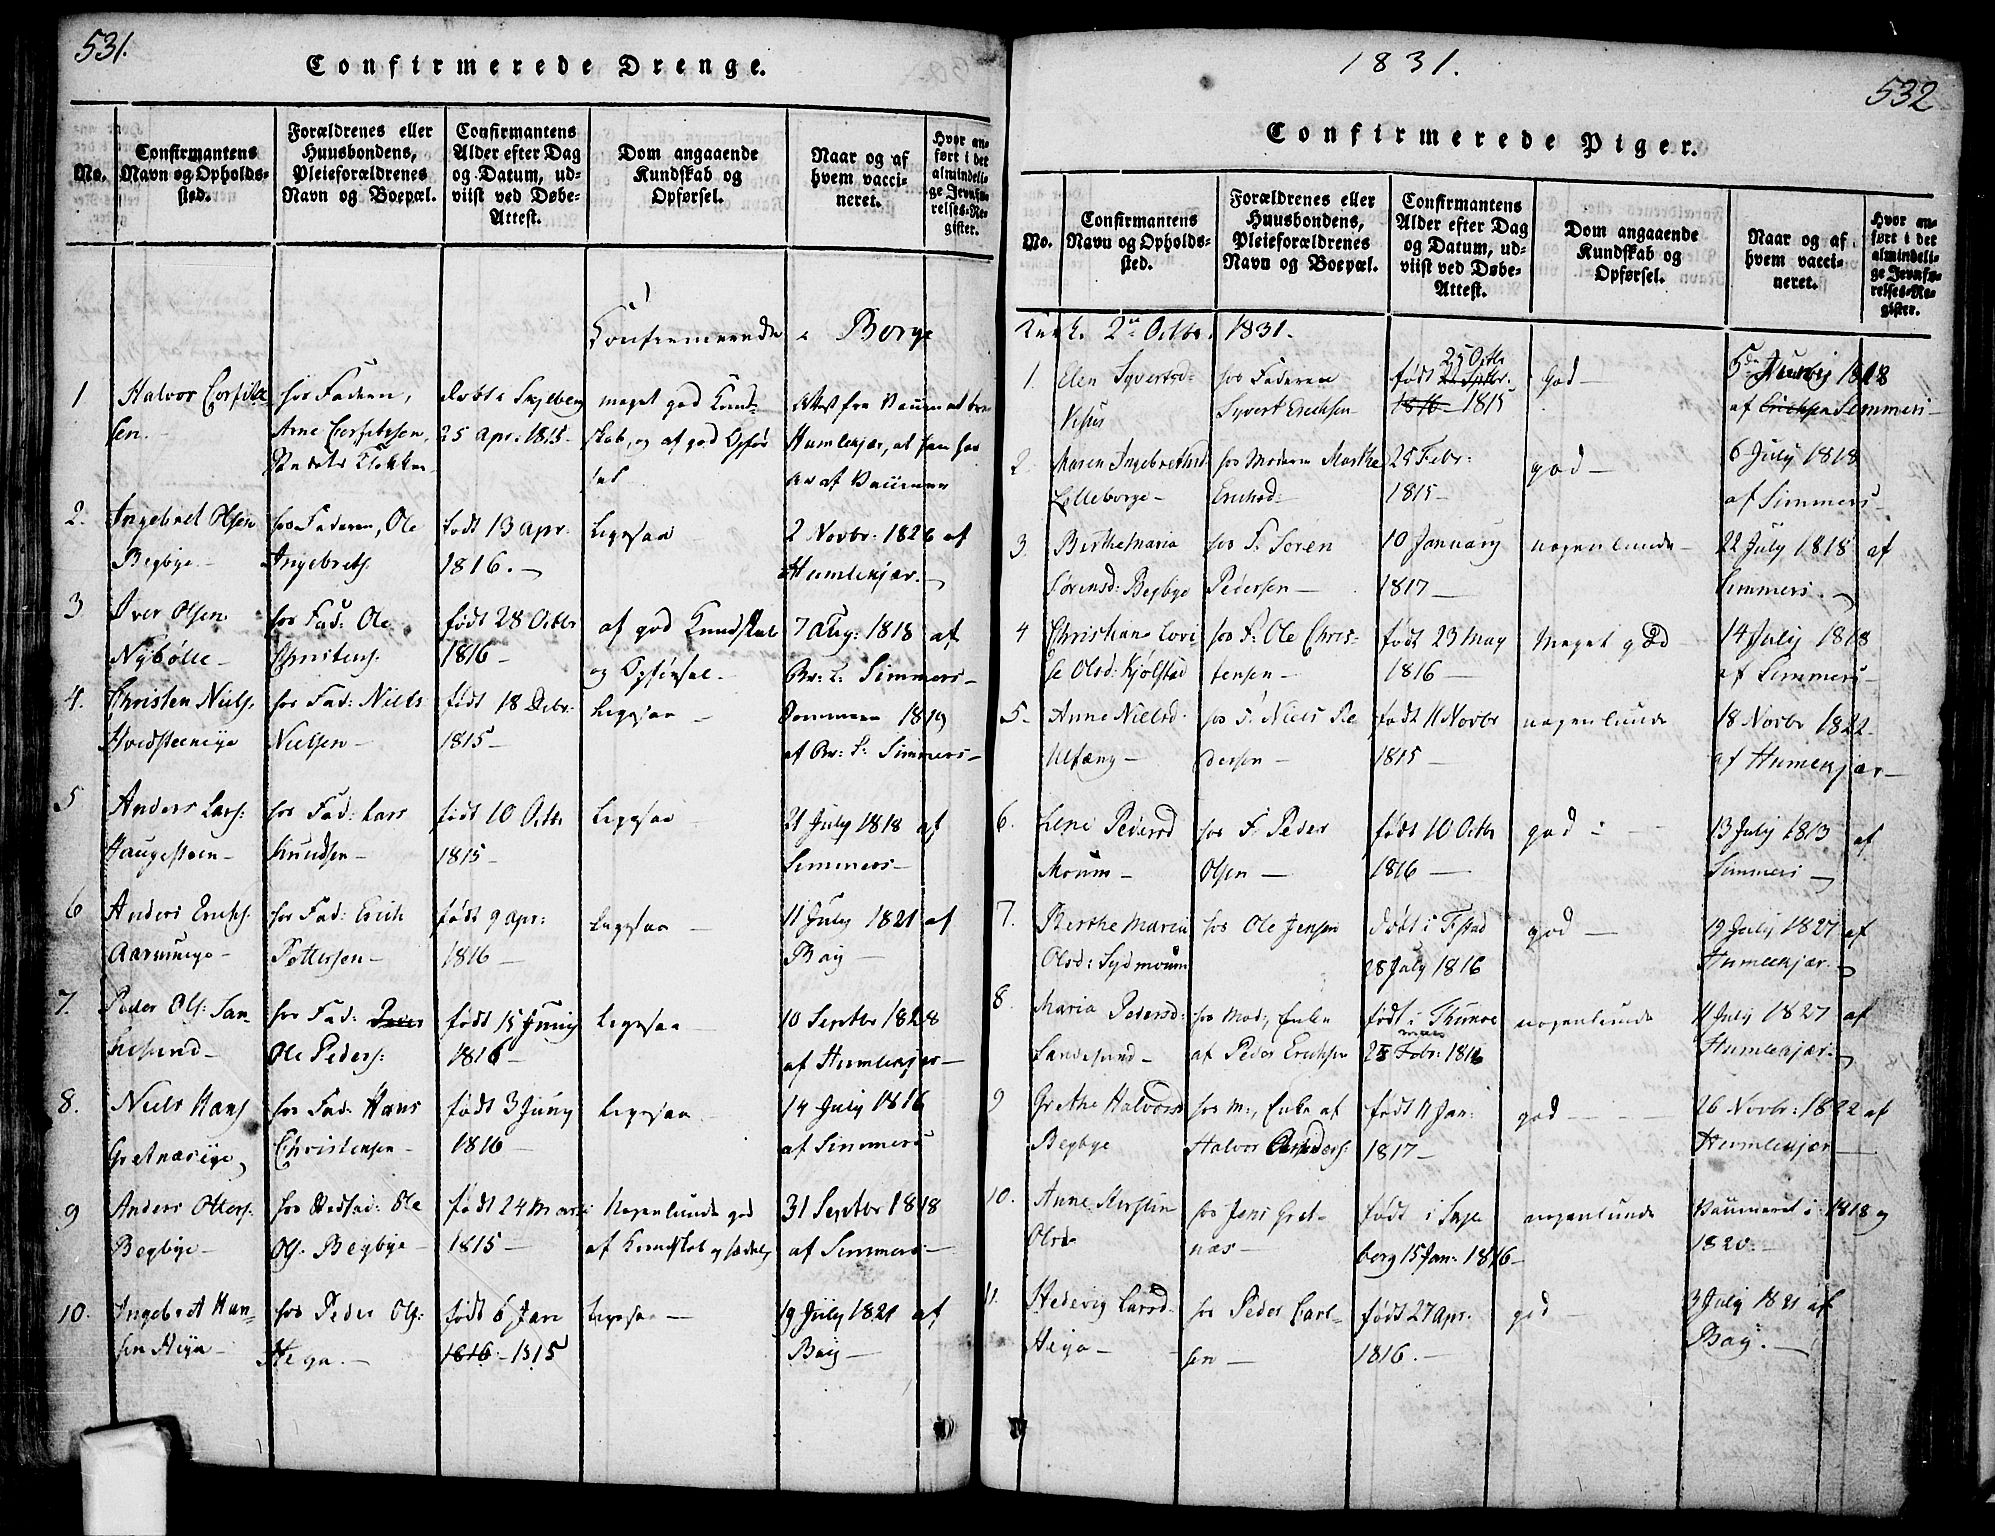 531.
Confirmerede Drenge.
No.
Confirmantens
Navn og Opholds-
sted.
Forældrenes eller
Huusbondens,
Pleieforældrenes
Navn og Boepæl.
Confirmantens
Alder efter Dag
og Datum, ud-
viist ved Døbe-
Attest.
Dom angaaende
Kundskab og
Opførsel.
Naar og af
hvem vacci-
neret.
Hvor an-
ført i det
almindeli-
ge Jevnfø-
relses-Re-
gister.
Borge
1
Halvor
sen.
hos Faderen,
Arne
25 Apr: 1815
meget god Kund-
skab, og af god Opfør
sel
Humlekjær, at han har
af
2.
Ingebret Olsen
Begbye
hos Faderen, Ole
Ingebrets.
født 13 Apr.
1816.
Ligesaa
2 Novbr: 1826 af
Humlekjær.
3
Iver Olsen
Nybølle
hos Fad: Ole
Christens.
født 28 Octbr
1816
af god Kundskab
og Opførsel
7 Aug: 1818 af
Simmers
4.
Christen Niels.
hos Fad: Niels
Nielsen
født 18 Debr.
1815
Ligesaa
1819
af Simmers
5
Anders Lars:
Haugesteen
hos Fad: Lars
Knudsen
født 10 Octbr
1815
Ligesaa
21 July 1818 af
Simmers
6
Anders Erichs.
hos Fad: Erich
Pettersen
født 9 Apr:
1816
Ligesaa
11 July 1821 af
Bay
7.
Peder Ols: San-
nesund
hos Fad: Peder
Ole Peders:
født 15 Juny
1816
Ligesaa
10 Septbr 1828
af Humlekjær
8.
Niels Hans
hos Fad: Hans
Christensen
født 3 Juny
1816
Ligesaa
14 July 1816
af Simmers
9
Anders Otters.
Begbye
hos Ole
Ols. Begbye
født 24 Marts
1815
Nogenlunde god
af Kundskab og
31 Septbr 1818
af Simmers
10.
Ingebret Han-
sen Heya
hos Peder Ols:
Heya.
født 6 Jan
1816 1815
Ligesaa
19 July 1821 af
Bay
1831.
532
Confirmerede Piger.
No.
Confirmantens
Navn og Opholds-
sted.
Forældrenes eller
Huusbondens,
Pleieforældrenes
Navn og Boepæl.
Confirmantens
Alder efter Dag
og Datum, ud-
viist ved Døbe-
Attest.
Dom angaaende
Kundskab og
Opførsel.
Naar og af
hvem vacci-
neret.
Hvor an-
ført i det
almindeli-
ge Jevnfø-
relses-Re-
gister.
2 Octbr. 1831.
1.
Elen Syvertsd.
hos Faderen
Syvert Erichsen
25 Octbr
født
1816 1815
God
1818
af Simmers
2.
Maren Ingebrethsd
Lilleborge
hos Moderen Marthe
25 Febr:
1815
god
6 July 1818
af Simmers
3.
Berthe Maria
Sørensd: Begbye
hos F. Søren
Pedersen
10 January
1817
nogenlunde
22 July 1818 af
Simmers.
4
Christiane Lovi-
se Olsd: Kjølstad
hos F: Ole Chris-
tensen
født 23 May
1816
Meget god
14 July 1818
af Simmers
5.
Anne Nielsd.
hos F. Niels Pe
dersen
født 11 Novbr
1815
nogenlunde
18 Novbr 1822
af Humlekjær
6.
Lene Pedersd
Moum
hos F. Peder
Olsen
født 10 Octbr
1816
god
13 July 1813 af
Simmers
7.
Berthe Maria
Olsd: Sydmoum
hos Ole Jensen
født i Fstad
28 July 1816
god
19 July 1827 af
Humlekjær.
8.
Maria Pedersd:
Sandesund
hos Mod:, Enke
af Peder Erichsen
født i Thunøe
Febr: 1816
nogenlunde
11 July 1827 af
Humlekjær.
9
Grethe Halvorsd
Begbye
hos M:, Enke af
Halvor Anders:
født 11 Jan:
1817
god
26 Novbr: 1822 af
Humlekjær
10.
Anne Kirstin
Olsd
hos Jens Gret-
næs
født i Skje
berg 15 Jan: 1816
nogenlunde
1818 og
1820.
11.
Hedevig Larsd.
Heya
hos Peder Carl-
sen
født 27 Apr.
1816.
god
3 July 1821 af
Bay.